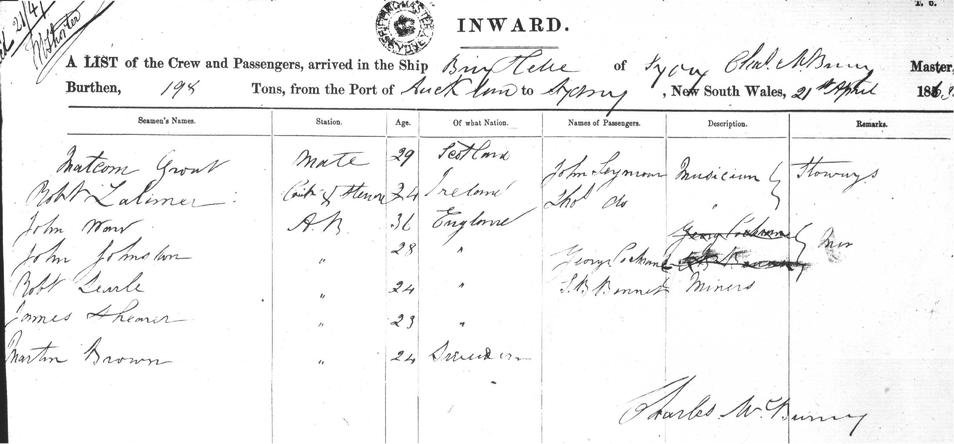 21/4/
INWARD.
A LIST of the Crew and Passengers, arrived in the Ship Brig Hebe of Sydney Chas. McBurney Master,
Burthen, 198 Tons, from the Port of Auckland to Sydney, New South Wales, 21st April 186
Seamen's Names. Station. Age. Of what Nation. Names of Passengers. Description. Remarks.
Malcom Grant Mate 29 Scotland John Seymour Musician Stowways
Robt Latimer Cook & Steward 24 Ireland Thos do "
John Ward A.B. 36 England
John Johnston " 28 " George Cochrane
Robt Searle " 24 " Bonnet Miners
James Shearer " 23 "
Martin Brown " 24 Sweeden
Charles McBurney